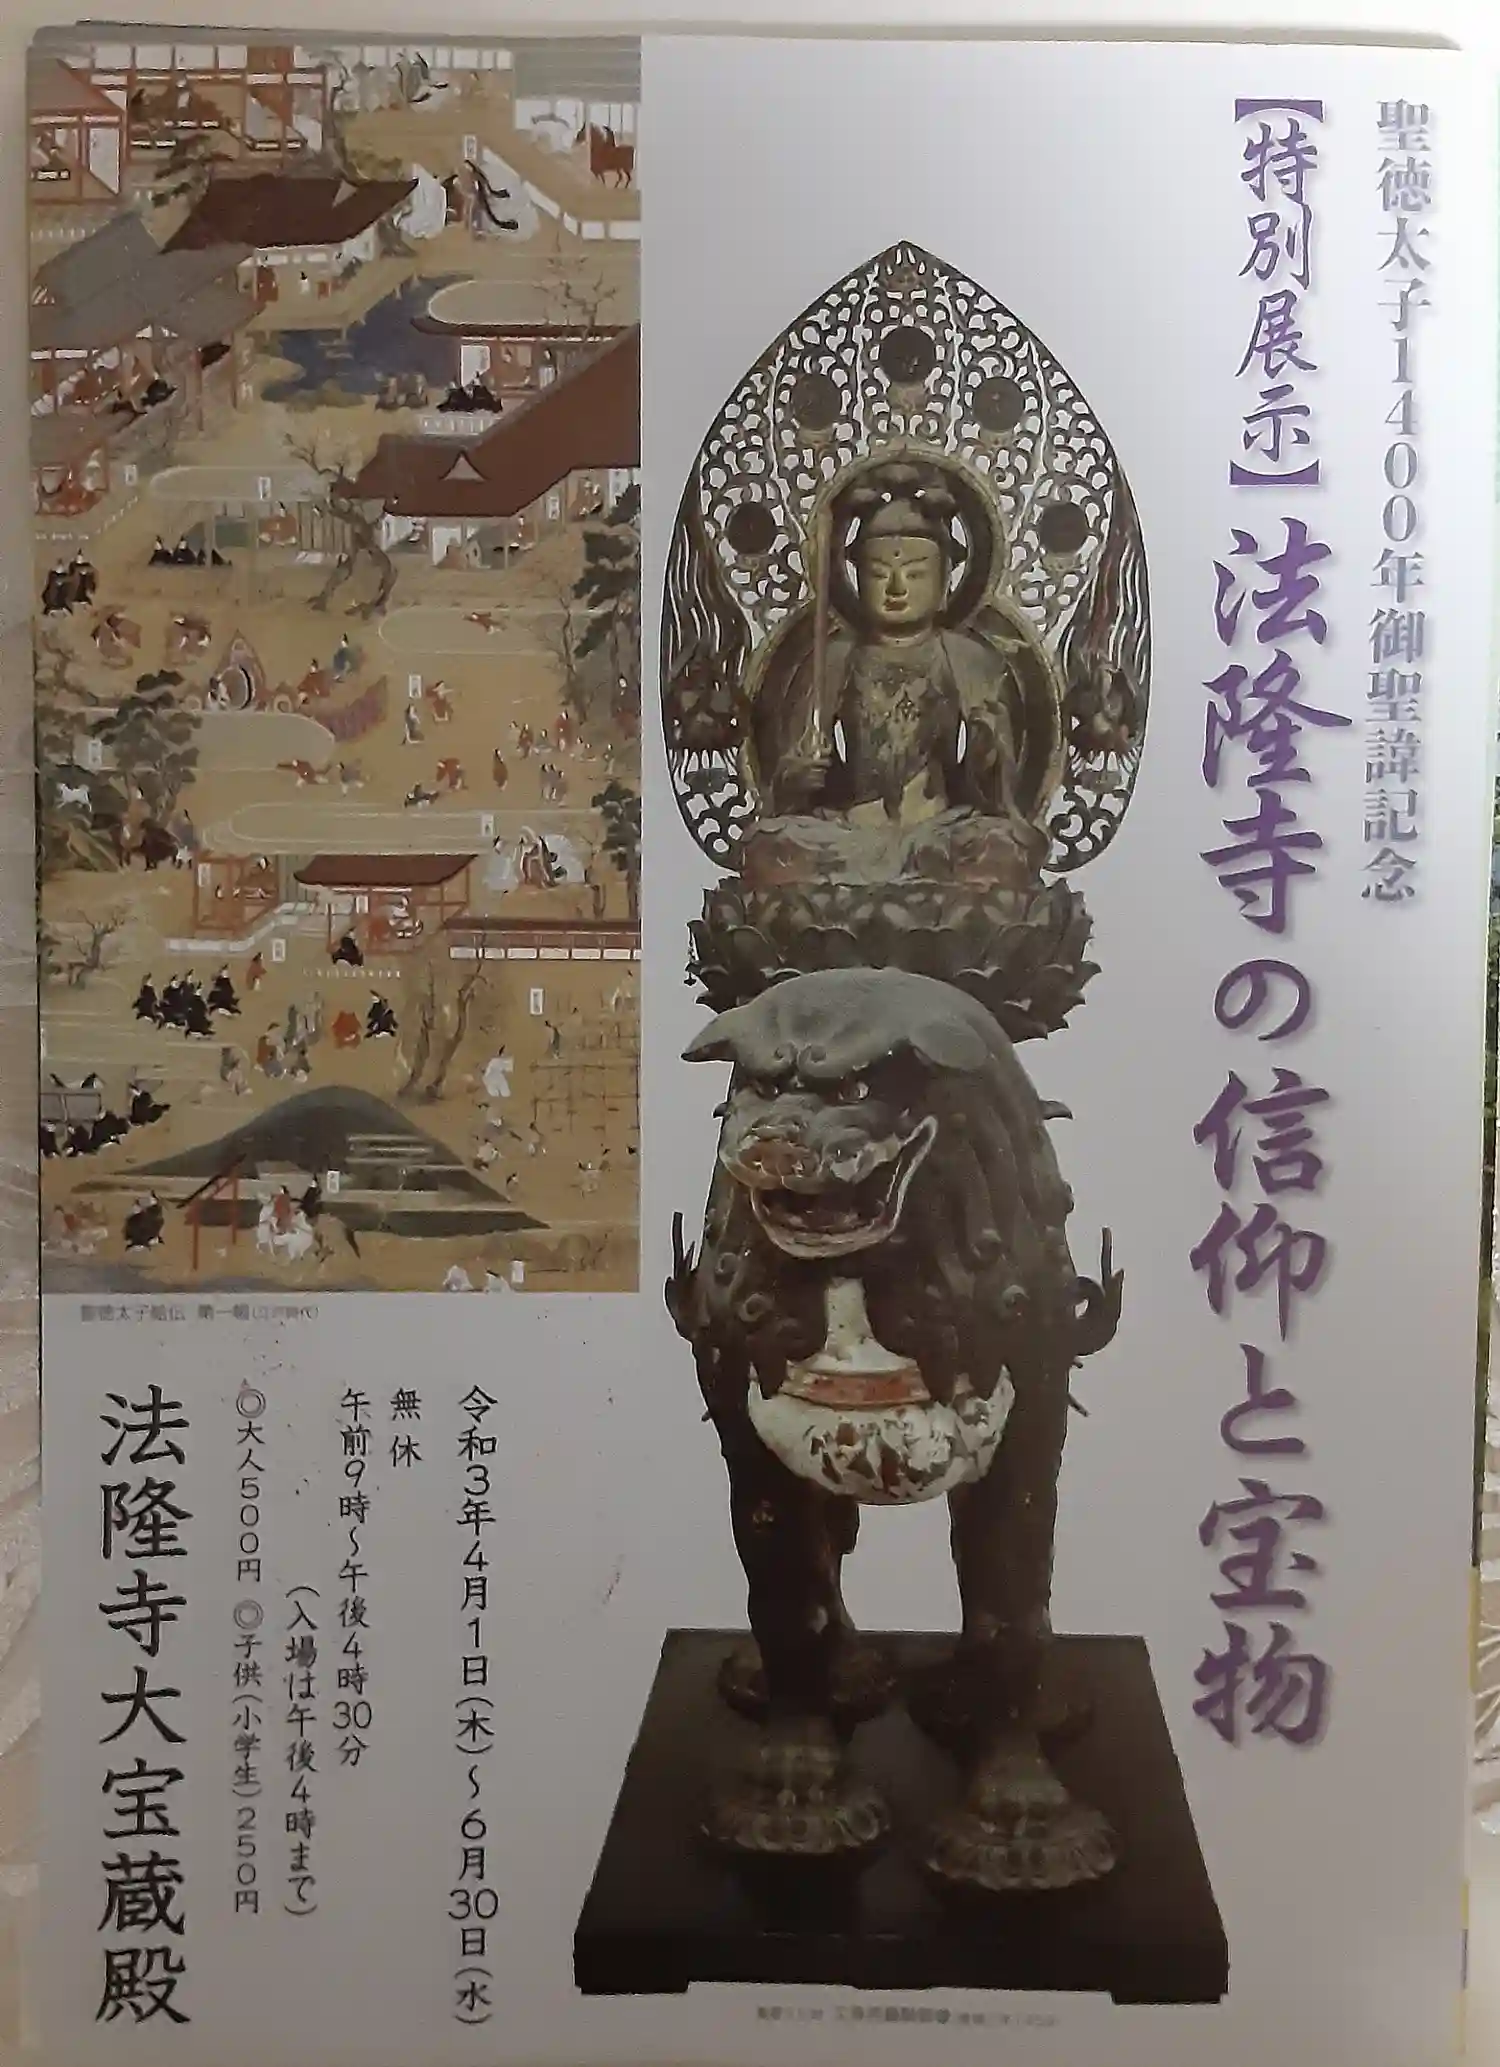 聖徳太子1400年御聖諱記念
【特別展示】法隆寺の信仰と宝物
令和3年4月1日(木)~6月30日(水)
無休
午前9時~午後4時30分
(入場は午後4時まで)
◎大人500円 ◎子供(小学生)250円
法隆寺大宝蔵殿
聖徳太子絵伝 第一幅(江戸時代)